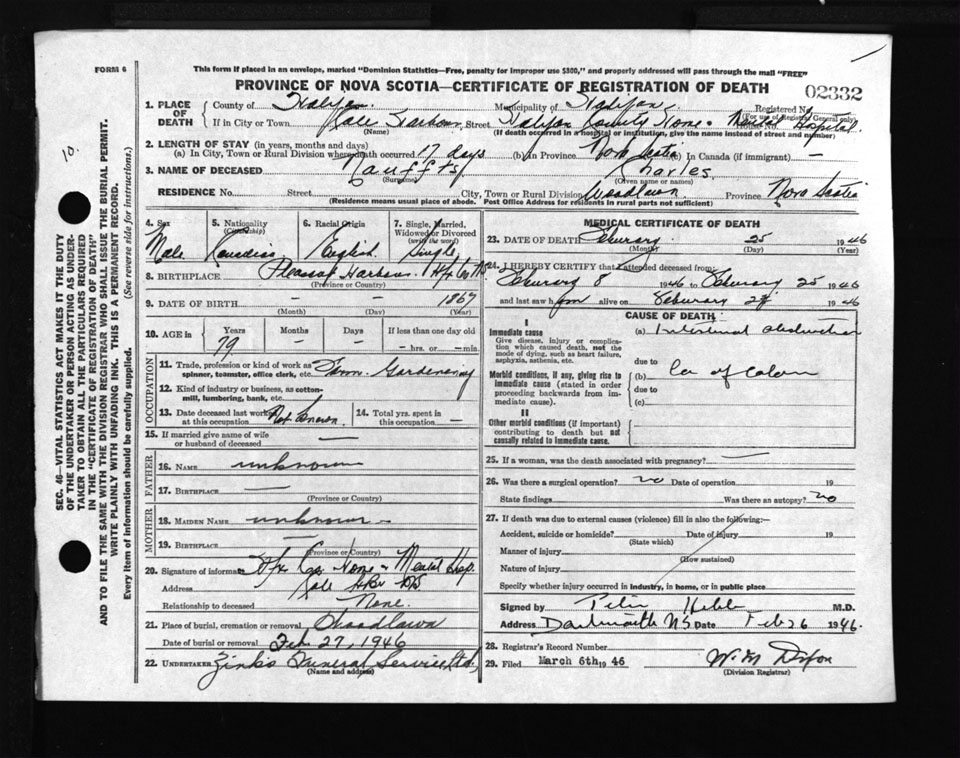 FORM 6
This form if placed in an envelope, marked "Dominion Statistics—Free, penalty for improper use $300," and properly addressed will pass through the mail "FREE"
PROVINCE OF NOVA SCOTIA—CERTIFICATE OF REGISTRATION OF DEATH
02332
10.
SEC. 46—VITAL STATISTICS ACT MAKES IT THE DUTY
OF THE UNDERTAKER OR PERSON ACTING AS UNDER-
TAKER TO OBTAIN ALL THE PARTICULARS REQUIRED
IN THE "CERTIFICATE OF REGISTRATION OF DEATH"
AND TO FILE THE SAME WITH THE DIVISION REGISTRAR WHO SHALL ISSUE THE BURIAL PERMIT.
WRITE PLAINLY WITH UNFADING INK. THIS IS A PERMANENT RECORD.
Every item of information should be carefully supplied. (See reverse side for instructions.)
1. PLACE OF DEATH
County of Halifax. Municipality of Halifax Registered No.
(For use of Registrar General only)
If in City or Town Cole Harbour Street Halifax County Home & Mental Hospital. House No.
(Name) (If death occurred in a hospital or institution, give its name instead of street and number)
2. LENGTH OF STAY (in years, months and days)
(a) In City, Town or Rural Division where death occurred 17 days (b) in Province Nova Scotia (c) In Canada (if immigrant) —
3. NAME OF DECEASED Gaufftsy Charles.
(Surname) (Given name or names)
RESIDENCE No. Street City, Town or Rural Division Woodlawn Province Nova Scotia
(Residence means usual place of abode. Post Office Address for residents in rural parts not sufficient)
4. Sex
Male
5. Nationality (Citizenship)
Canadian
6. Racial Origin
English
7. Single, Married, Widowed or Divorced (write the word)
Single
8. BIRTHPLACE Pleasant Harbour Hfx Co N.S.
(Province or Country)
9. DATE OF BIRTH — — 1867
(Month) (Day) (Year)
10. AGE in Years Months Days If less than one day old
79 — — — hrs. or — min.
OCCUPATION
11. Trade, profession or kind of work as spinner, teamster, office clerk, etc. Farm. Gardening
12. Kind of industry or business, as cotton-mill, lumbering, bank, etc.
13. Date deceased last worked at this occupation Not known.
14. Total yrs. spent in this occupation —
15. If married give name of wife or husband of deceased —
FATHER
16. NAME unknown
17. BIRTHPLACE —
(Province or Country)
MOTHER
18. MAIDEN NAME unknown —
19. BIRTHPLACE —
(Province or Country)
20. Signature of informant Hfx Co. Home & Mental Hosp.
Address Cole Hbr NS
Relationship to deceased None.
21. Place of burial, cremation or removal Woodlawn
Date of burial or removal Feb 27, 1946
22. UNDERTAKER Zink's Funeral Service Ltd,
(Name and address)
MEDICAL CERTIFICATE OF DEATH
23. DATE OF DEATH February 25 1946
(Month) (Day) (Year)
24. I HEREBY CERTIFY that I attended deceased from:
February 8 1946 to February 25 1946
and last saw him alive on February 24 1946
CAUSE OF DEATH
I
Immediate cause
Give disease, injury or complication which caused death, not the mode of dying, such as heart failure, asphyxia, asthenia, etc.
(a) Intestinal obstruction
due to
Morbid conditions, if any, giving rise to immediate cause (stated in order proceeding backwards from immediate cause).
(b) Ca of Colon
due to
(c)
II
Other morbid conditions (if important) contributing to death but not causally related to immediate cause.
25. If a woman, was the death associated with pregnancy? —
26. Was there a surgical operation? no Date of operation 19
State findings Was there an autopsy? no
27. If death was due to external causes (violence) fill in also the following:—
Accident, suicide or homicide? Date of injury 19
(State which)
Manner of injury
(How sustained)
Nature of injury
Specify whether injury occurred in industry, in home, or in public place
Signed by M.D.
Address Dartmouth NS Date Feb 26 1946.
28. Registrar's Record Number
29. Filed March 6th, 19 46
W. M Dixon
(Division Registrar)